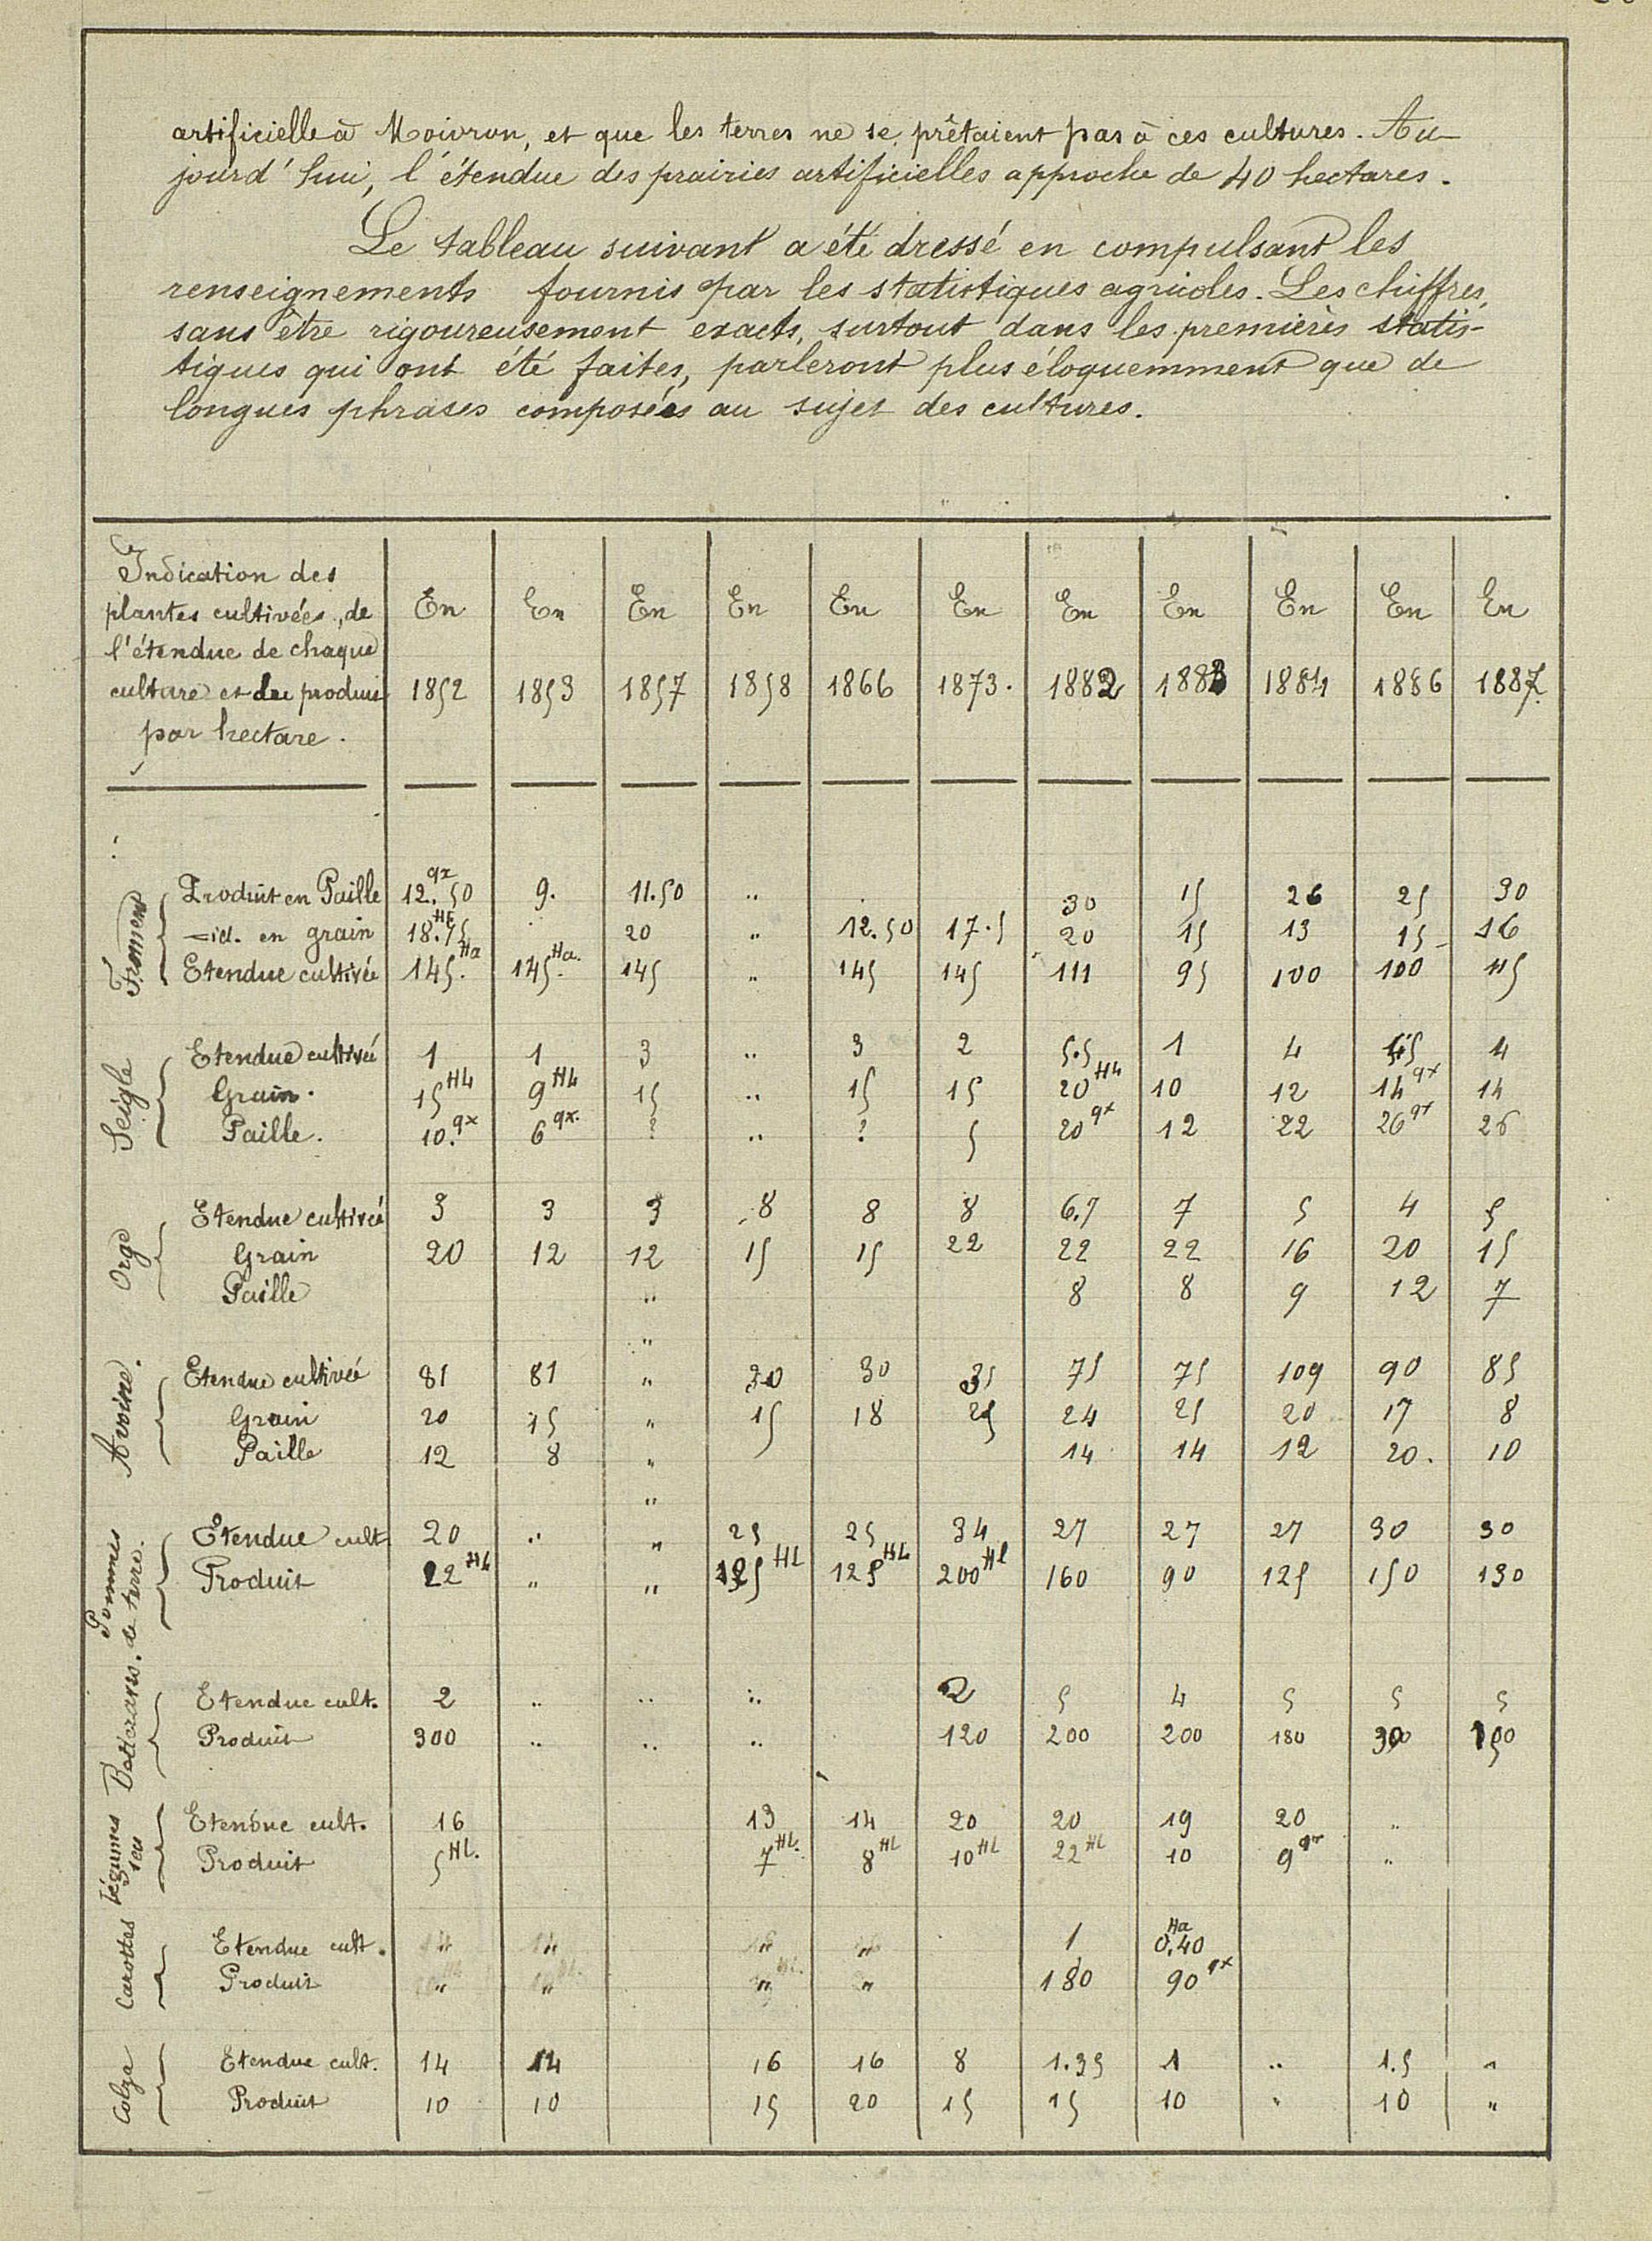 artificielle à Moivron, et que les terres ne se prêtaient pas à ces cultures. Au-
jourd'hui, l'étendue des prairies artificielles approche de 40 hectares.
Le tableau suivant a été dressé en compulsant les
renseignements fournis par les statistiques agricoles. Les chiffres,
sans être rigoureusement exacts, surtout dans les premières statis-
tiques qui ont été faites, parleront plus éloquemment que de
longues phrases composées au sujet des cultures.
Indication des
plantes cultivées, de
l'étendue de chaque
culture et du produit
par hectare.
En En En En En En En En En En En
1852 1853 1857 1858 1866 1873. 1882 1883 1884 1886 1887.
Froment
Produit en Paille 12.qx50 9. 11.50 .. 30 15 26 25 30
=id. en grain 18.Hl75 20 " 12.50 17.5 20 15 13 15 16
Etendue cultivée 145.Ha 145Ha. 145 " 145 145 111 95 100 100 115
Seigle
Etendue cultivée 1 1 3 .. 3 2 5.5 1 4 4 
Grain. 15HL 9HL 15 .. 15 15 20HL 10 12 14qx 14
Paille. 10.qx 6qx. ? .. ? 5 20qx 12 22 26qx 26
Orge
Etendue cultivée 3 3 3 8 8 8 6.7 7 5 4 5
Grain 20 12 12 15 15 22 22 22 16 20 15
Paille .. 8 8 9 12 7
"
Avoine.
Etendue cultivée 81 81 " 30 30 35 75 75 109 90 85
Grain 20 15 " 15 18 25 24 25 20 17 8
Paille 12 8 " 14 14 12 20. 10
"
Pommes de terre.
Etendue cult. 20 .. " 25 25 34 27 27 27 30 30
Produit 22HL " " 125HL 125HL 200Hl 160 90 125 150 130
Betteraves.
Etendue cult. 2 .. .. .. 2 5 4 5 5 5
Produit 300 .. .. .. 120 200 200 180 300 150
Légumes sec
Etendue cult. 16 13 14 20 20 19 20 "
Produit 5HL. 7HL. 8HL 10HL 22HL 10 9qx "
Carottes
Etendue cult. " " " " 1 0.Ha40
Produit " " " " 180 90qx
Colza
Etendue cult. 14 14 16 16 8 1.35 1 .. 1.5 "
Produit 10 10 15 20 15 15 10 " 10 "